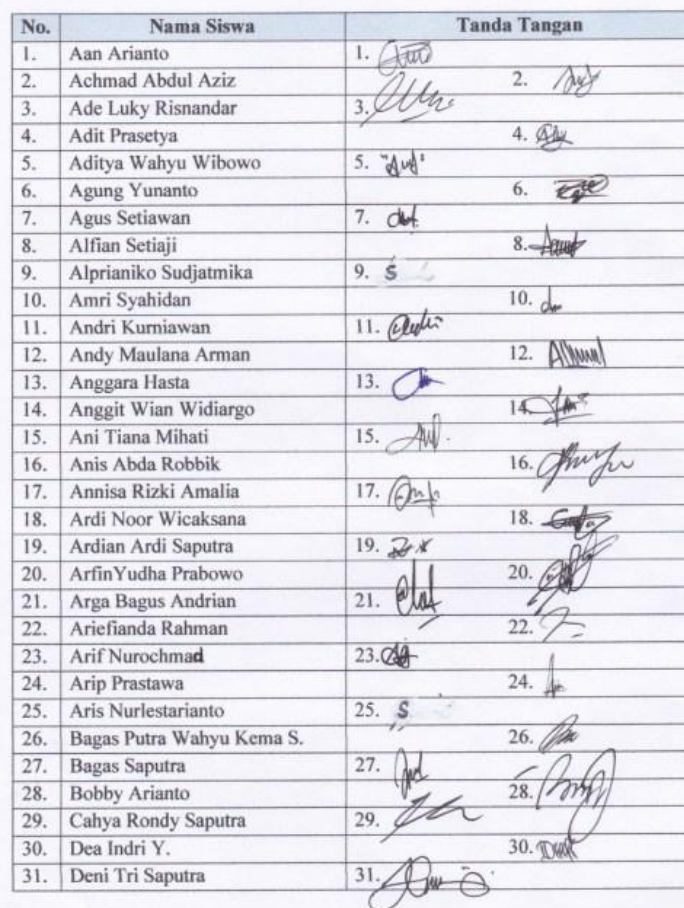 No. Nama Siswa Tanda Tangan
1. Aan Arianto 1.
2. Achmad Abdul Aziz 2.
3. Ade Luky Risnandar 3.
4. Adit Prasetya 4.
5. Aditya Wahyu Wibowo 5.
6. Agung Yunanto 6.
7. Agus Setiawan 7.
8. Alfian Setiaji 8.
9. Alprianiko Sudjatmika 9. S
10. Amri Syahidan 10.
11. Andri Kurniawan 11.
12. Andy Maulana Arman 12.
13. Anggara Hasta 13.
14. Anggit Wian Widiargo 14.
15. Ani Tiana Mihati 15.
16. Anis Abda Robbik 16.
17. Annisa Rizki Amalia 17.
18. Ardi Noor Wicaksana 18.
19. Ardian Ardi Saputra 19.
20. ArfinYudha Prabowo 20.
21. Arga Bagus Andrian 21.
22. Ariefianda Rahman 22.
23. Arif Nurochmad 23.
24. Arip Prastawa 24.
25. Aris Nurlestarianto 25. S
26. Bagas Putra Wahyu Kema S. 26.
27. Bagas Saputra 27.
28. Bobby Arianto 28.
29. Cahya Rondy Saputra 29.
30. Dea Indri Y. 30.
31. Deni Tri Saputra 31.